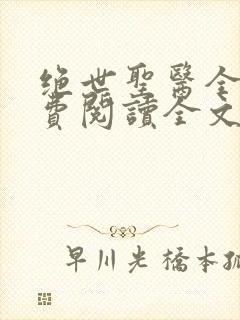 绝世聖醫全
費閱讀全文
早川光橋本狐